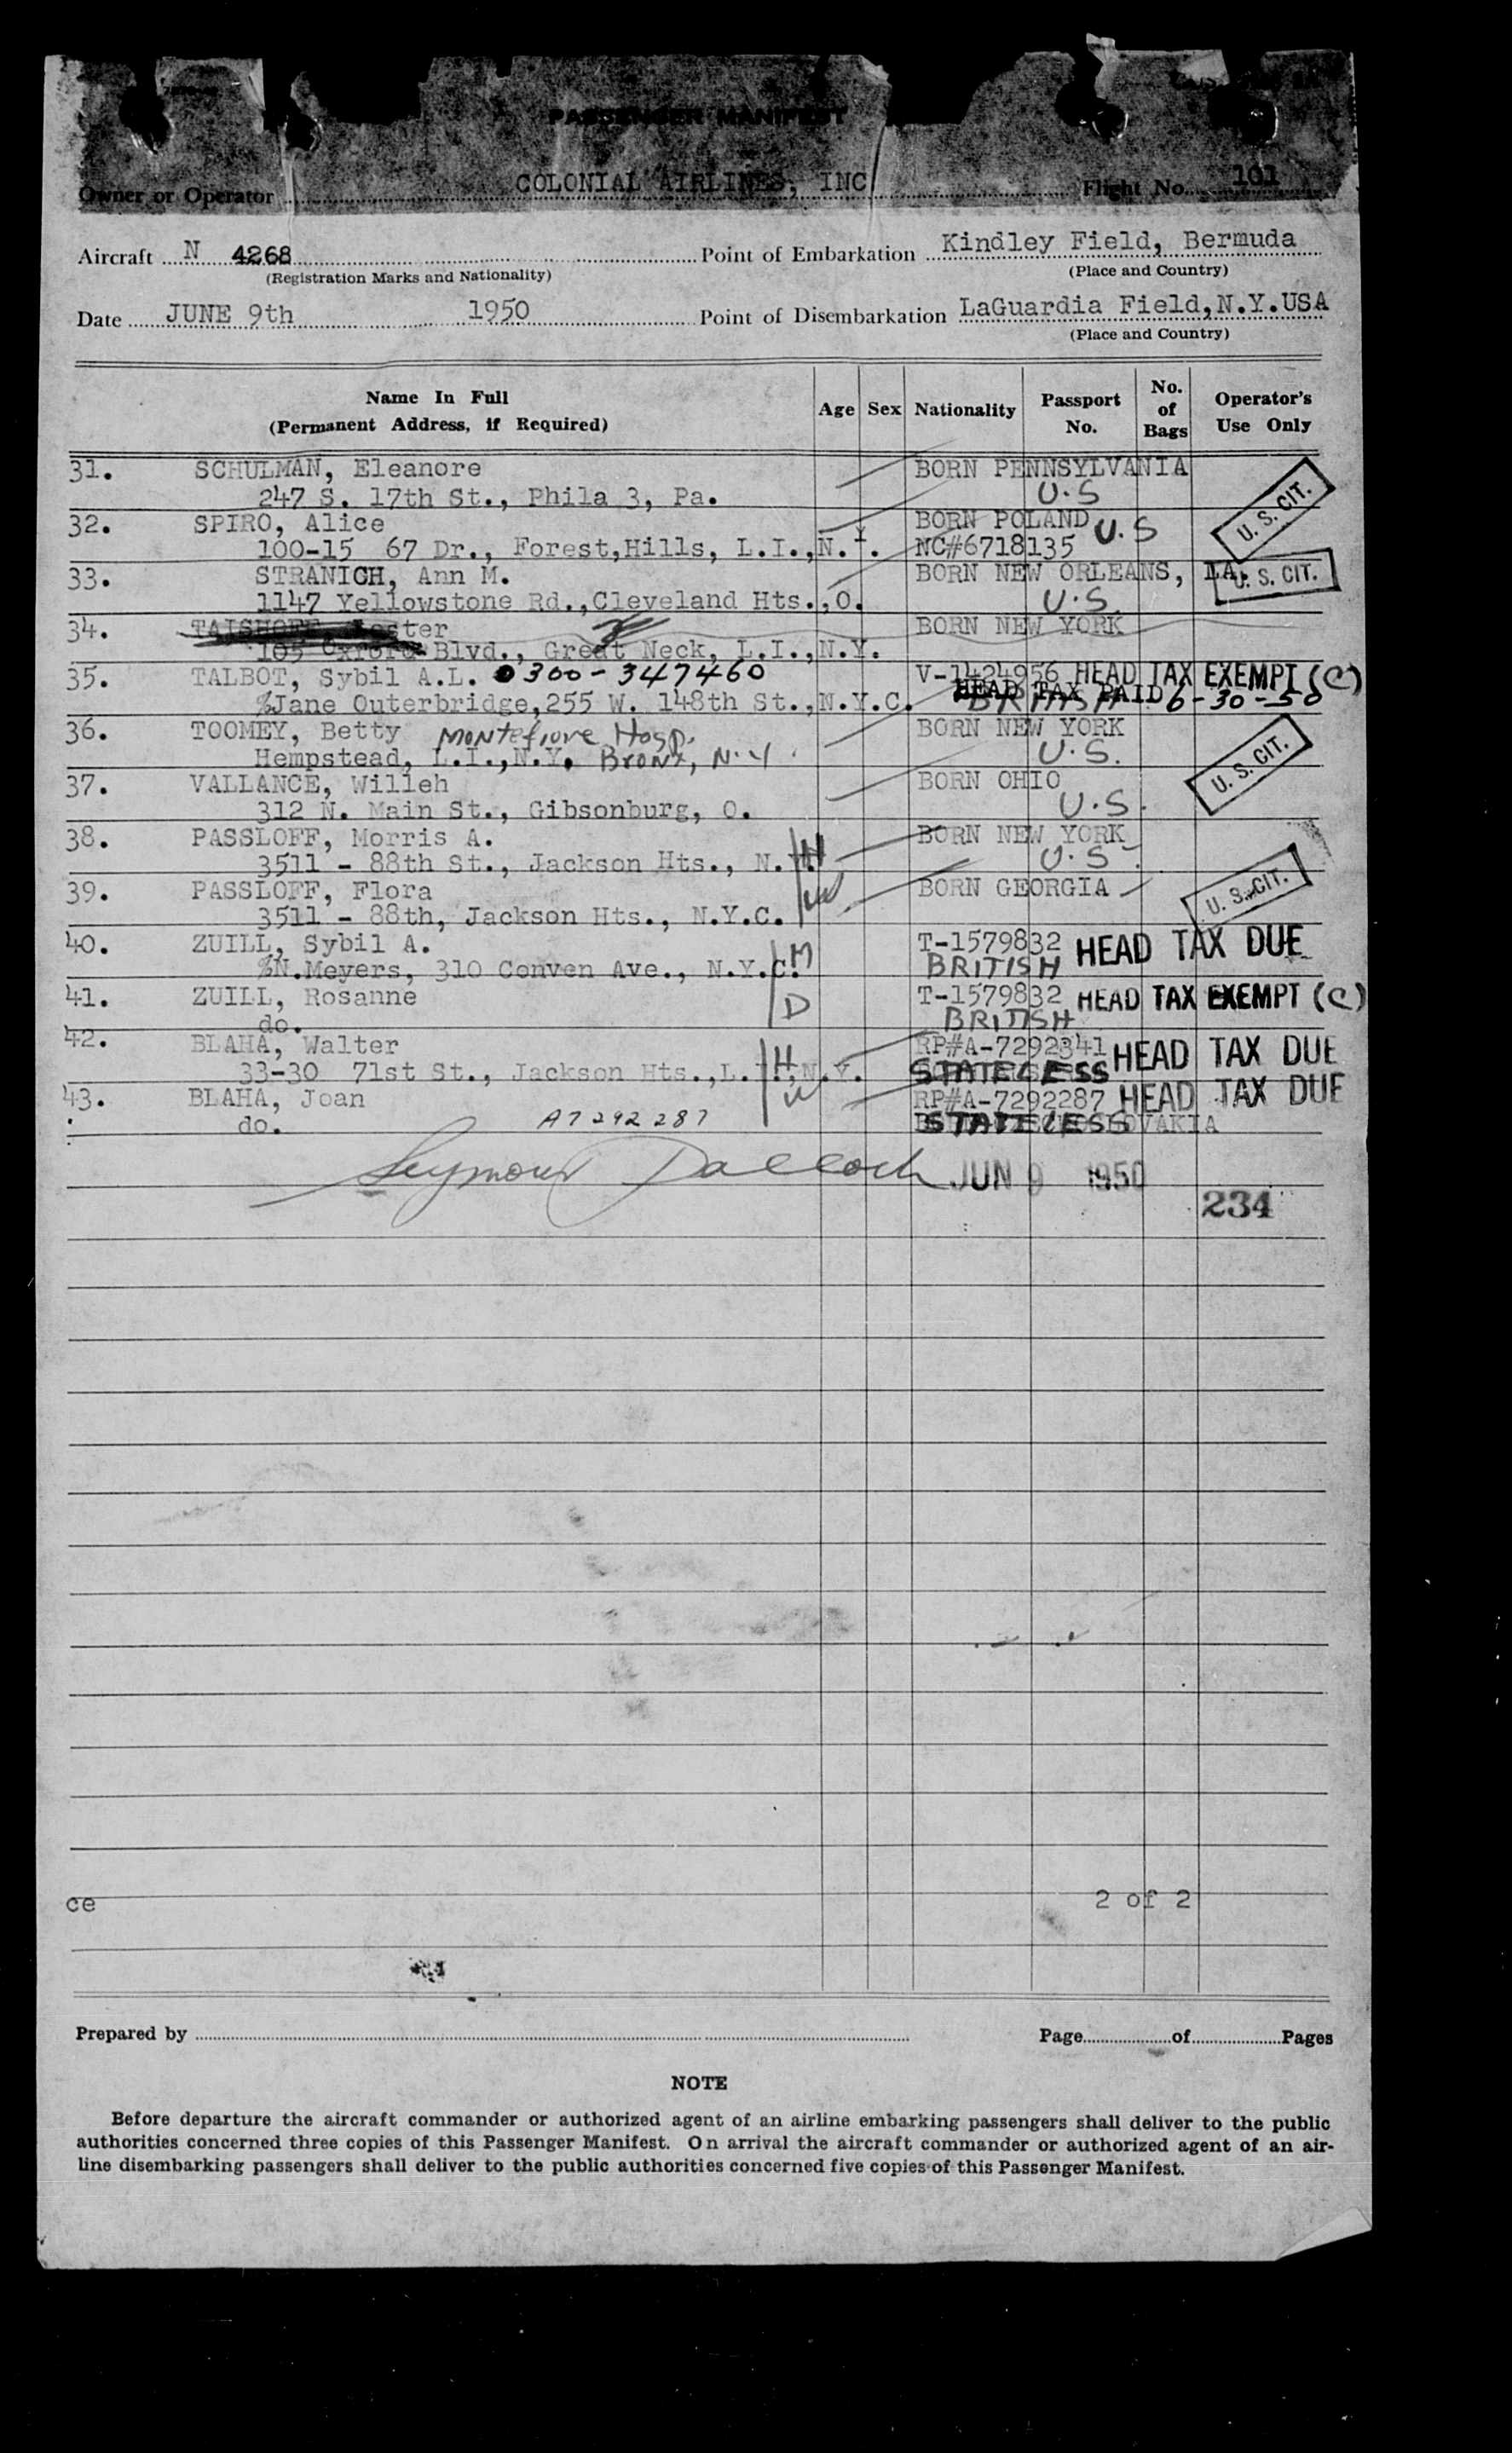 PASSENGER MANIFEST
Owner or Operator COLONIAL AIRLINES, INC Flight No. 101
Aircraft N 4268 Point of Embarkation Kindley Field, Bermuda
(Registration Marks and Nationality) (Place and Country)
Date JUNE 9th 1950 Point of Disembarkation LaGuardia Field,N.Y.USA
(Place and Country)
Name In Full
(Permanent Address, if Required)
Age Sex Nationality Passport No. No. of Bags Operator's Use Only
31. SCHULMAN, Eleanore BORN PENNSYLVANIA
247 S. 17th St., Phila 3, Pa. U.S
U. S. CIT.
32. SPIRO, Alice BORN POLAND U.S
100-15 67 Dr., Forest,Hills, L.I.,N.Y. NC#6718135
33. STRANICH, Ann M. BORN NEW ORLEANS, LA.
U. S. CIT.
1147 Yellowstone Rd.,Cleveland Hts.,O. U.S.
34. BORN NEW YORK
105 Oxford Blvd., Great Neck, L.I.,N.Y.
35. TALBOT, Sybil A.L. 0300-347460 V-1424956 HEAD TAX EXEMPT (C)
%Jane Outerbridge,255 W. 148th St.,N.Y.C. BRITISH HEAD TAX PAID 6-30-50
36. TOOMEY, Betty Montefiore Hosp. BORN NEW YORK
Hempstead, L.I.,N.Y. Bronx, N.Y. U.S.
U. S. CIT.
37. VALLANCE, Willeh BORN OHIO
312 N. Main St., Gibsonburg, O. U.S.
38. PASSLOFF, Morris A. H BORN NEW YORK
3511 - 88th St., Jackson Hts., N. U.S.
39. PASSLOFF, Flora W BORN GEORGIA
U. S. CIT.
3511 - 88th, Jackson Hts., N.Y.C.
40. ZUILL, Sybil A. M T-1579832 HEAD TAX DUE
%N.Meyers, 310 Conven Ave., N.Y.C. BRITISH
41. ZUILL, Rosanne D T-1579832 HEAD TAX EXEMPT (C)
do. BRITISH
42. BLAHA, Walter H RP#A-7292341 HEAD TAX DUE
33-30 71st St., Jackson Hts.,L.I.,N.Y. STATELESS
43. BLAHA, Joan W RP#A-7292287 HEAD TAX DUE
do. A7292287 STATELESS
Seymour JUN 9 1950
234
ce 2 of 2
Prepared by Page of Pages
NOTE
Before departure the aircraft commander or authorized agent of an airline embarking passengers shall deliver to the public
authorities concerned three copies of this Passenger Manifest. On arrival the aircraft commander or authorized agent of an air-
line disembarking passengers shall deliver to the public authorities concerned five copies of this Passenger Manifest.